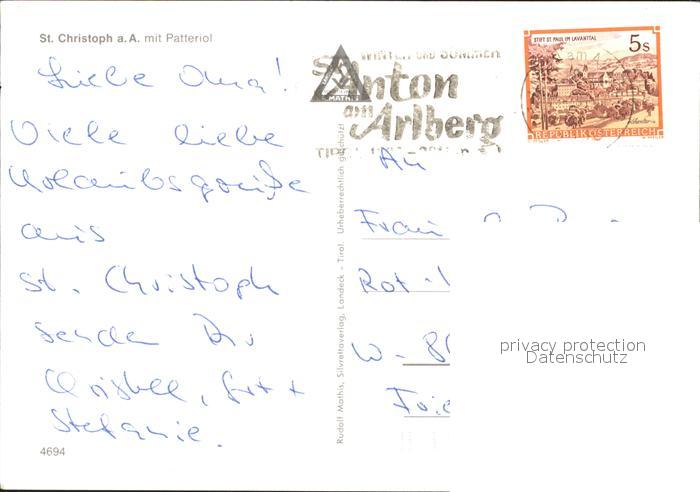 St. Christoph a. A. mit Patteriol
Liebe Oma!
Viele liebe
Urlaubsgrüße
aus
St. Christoph
senden Dir
Christel, +
Stefanie.
4694
Rudolf Mathis, Silvrettaverlag, Landeck - Tirol. Urheberrechtlich geschützt!
MATHIS
WINTER UND SOMMER
St. Anton
am Arlberg
TIROL
STIFT ST. PAUL IM LAVANTTAL
5 s
REPUBLIK ÖSTERREICH
An
Frau
Rot
W-8
privacy protection
Datenschutz